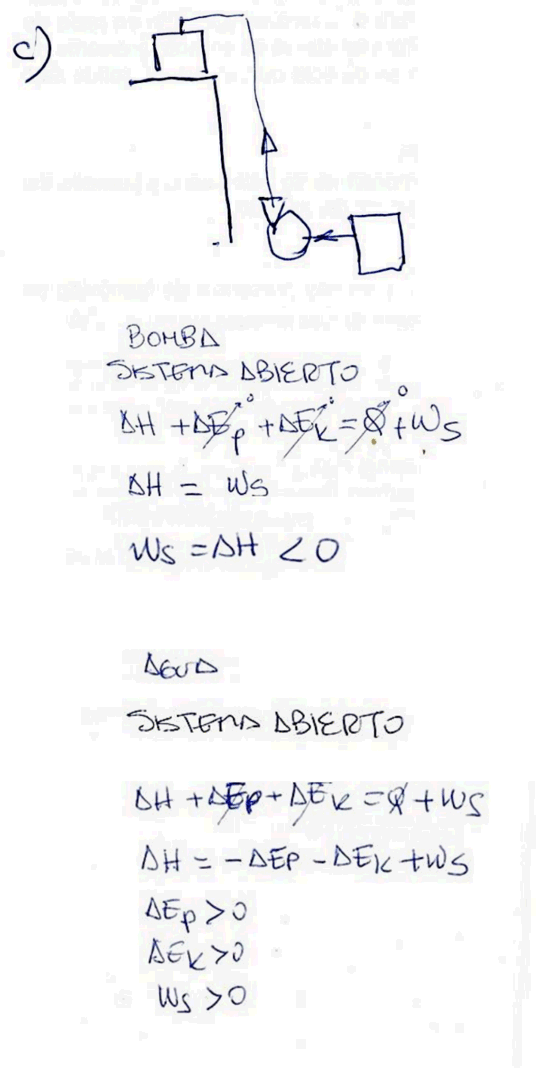 c)
BOMBA
SISTEMA ABIERTO
ΔH + ΔEp⁰ + ΔEk⁰ = Q⁰ + Ws
ΔH = Ws
Ws = ΔH < 0
AGUA
SISTEMA ABIERTO
ΔH + ΔEp + ΔEk = Q + Ws
ΔH = -ΔEp - ΔEk + Ws
ΔEp > 0
ΔEk > 0
Ws > 0